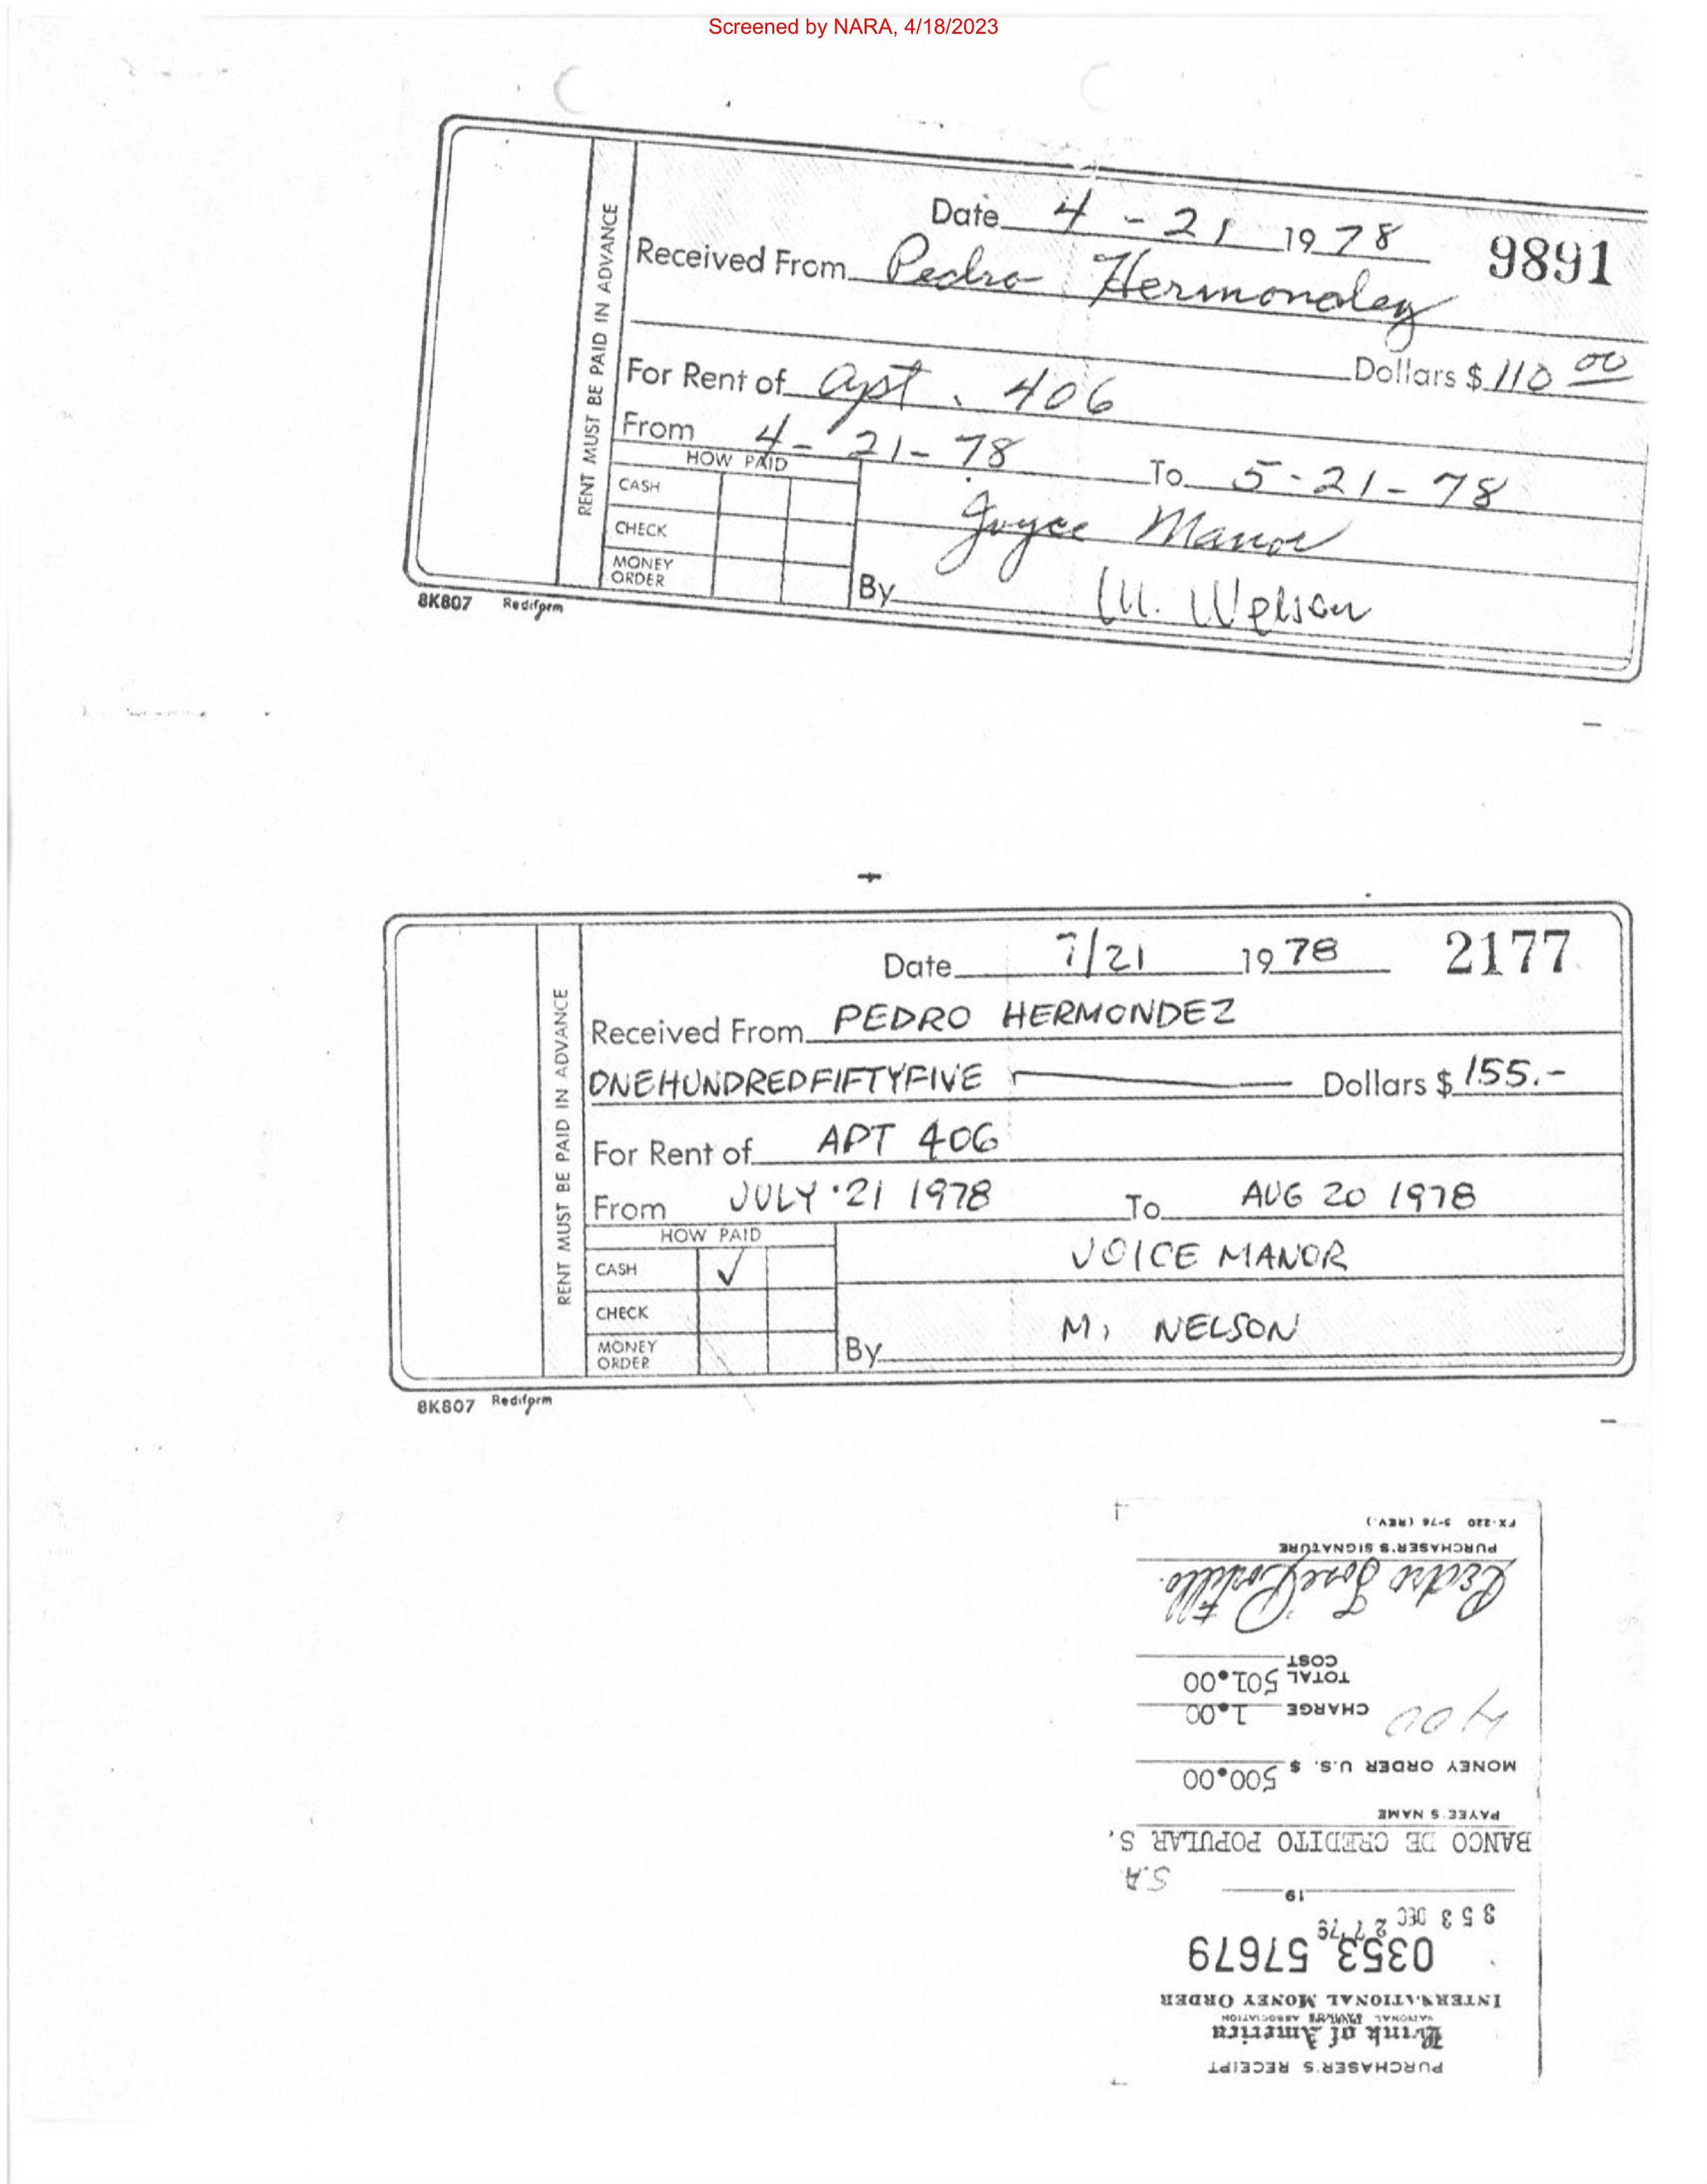 Screened by NARA, 4/18/2023
RENT MUST BE PAID IN ADVANCE
Date 4-21 1978 9891
Received From Pedro Hermondez
Dollars $ 110 00
For Rent of apt. 406
From 4-21-78 To 5-21-78
HOW PAID
CASH
CHECK
MONEY ORDER
Joyce Manor
By M. Nelson
8K807 Rediform
RENT MUST BE PAID IN ADVANCE
Date 7/21 1978 2177
Received From PEDRO HERMONDEZ
ONEHUNDREDFIFTYFIVE Dollars $ 155.-
For Rent of APT 406
From JULY 21 1978 To AUG 20 1978
HOW PAID
CASH ✓
CHECK
MONEY ORDER
JOICE MANOR
By M, NELSON
8K807 Rediform
PURCHASER'S RECEIPT
Bank of America
NATIONAL SAVINGS ASSOCIATION
INTERNATIONAL MONEY ORDER
0353 57679
353 DEC 27 79
19
S.A
BANCO DE CREDITO POPULAR S.
PAYEE'S NAME
MONEY ORDER U.S. $ 500.00
400
CHARGE 1.00
TOTAL COST 501.00
Pedro Jose Portillo.
PURCHASER'S SIGNATURE
FX-220 5-76 (REV.)